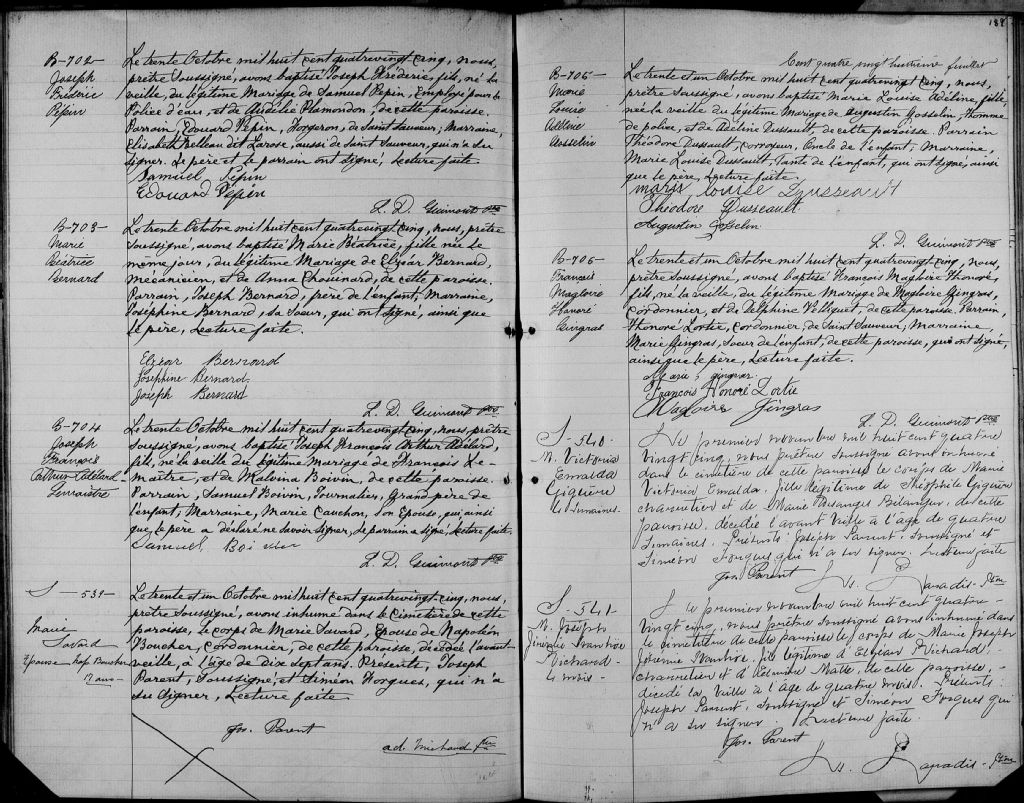 B-702
Joseph
Frédéric
Pépin
Le trente Octobre mil huit cent quatrevingt cinq, nous,
prêtre soussigné, avons baptisé Joseph Fréderic, fils, né la
veille, du légitime Mariage de Samuel Pépin, Employé pour la
Police d'eau, et de Audélie Plamondon, de cette paroisse.
Parrain, Edouard Pépin, Forgeron, de Saint Sauveur; Marraine,
Elisabeth dit Larose, aussi de Saint Sauveur, qui n'a su
signer. Le père et le parrain ont signé, Lecture faite
Samuel Pépin
Edouard Pépin
L. D. Guimont Ptre
B-703-
Marie
Béatrice
Bernard
Le trente Octobre mil huit cent quatrevingt cinq, nous, prêtre
soussigné, avons baptisé Marie Béatrice, fille née le
même jour, du légitime Mariage de Elzéar Bernard,
mécanicien, et de Anna Chouinard, de cette paroisse.
Parrain, Joseph Bernard, frère de l'enfant, Marraine,
Joséphine Bernard, sa Soeur, qui ont signé, ainsi que
le père, Lecture faite.
Elzéar Bernard
Joséphine Bernard
Joseph Bernard
L. D. Guimont Ptre
B-704
Joseph
François
Arthur Adélard
Lemaistre
Le trente Octobre mil huit cent quatrevingt cinq, nous, prêtre
soussigné, avons baptisé Joseph François Arthur Adélard,
fils, né la veille du légitime mariage de François Le-
maître, et de Malvina Boivin, de cette paroisse.
Parrain, Samuel Boivin, Journalier, Grand père de
l'enfant, Marraine, Marie Cauchon, son Epouse, qui, ainsi
que le père a déclaré ne savoir signer, Le parrain a signé, lecture faite
Samuel Boivin
L. D. Guimont Ptre
S - 539-
Marie
Savard
Epouse Nap Boucher
17 ans-
Le trente et un Octobre mil huit cent quatrevingt cinq, nous,
prêtre Soussigné, avons inhumé dans le Cimetière de cette
paroisse, le corps de Marie Savard, Epouse de Napoléon
Boucher, Cordonnier, de cette paroisse, décédée l'avant
veille, à l'âge de Dix sept ans. Présents, Joseph
Parent, Soussigné, et Siméon Forgues, qui n'a
su signer, Lecture faite
Jos. Parent
ad. Michaud Ptre
189
Cent quatre vingt huitième feuillet
B-705-
Marie
Louise
Adéline
Gosselin
Le trente et un Octobre mil huit cent quatrevingt cinq, nous,
prêtre Soussigné, avons baptisé Marie Louise Adéline, fille,
née la veille du légitime Mariage de Augustin Gosselin, homme
de police, et de Adéline Dussault, de cette paroisse. Parrain
Théodore Dussault, corroyeur, Oncle de l'enfant; Marraine,
Marie Louise Dussault, Tante de l'enfant, qui ont signé, ainsi
que le père, Lecture faite.
marie Louise Dusseault
Théodore Dusseault
Augustin Gosselin
L. D. Guimont Ptre
B-706-
François
Magloire
Honoré
Gingras
Le trente et un Octobre mil huit cent quatrevingt cinq, nous,
prêtre Soussigné, avons baptisé François Magloire Honoré
fils, né la veille, du légitime Mariage de Magloire Gingras,
Cordonnier, et de Delphine de cette paroisse, Parrain,
Honoré Lortie, Cordonnier, de Saint Sauveur; Marraine,
Marie Gingras, Soeur de l'enfant, de cette paroisse, qui ont signé,
ainsi que le père, Lecture faite.
Marie gingras.
François Honoré Lortie
Magloire Gingras
L. D. Guimont Ptre
S - 540-
M. Victoria
Emealda
Giguère
4 Semaines.
Le premier novembre mil huit cent quatre
vingt cinq, nous prêtre soussigné avons inhumé
dans le cimetière de cette paroisse le corps de Marie
Victoria Emealda, fille légitime de Théophile Giguère
charretier et de Marie Desanges Bélanger, de cette
paroisse, décédée l'avant veille à l'âge de quatre
Semaines. Présents: Joseph Parent, soussigné et
Siméon Forgues qui n'a su signer. Lecture faite
Jos Parent
Ls. Paradis - Ptre
S - 541-
M. Joseph
Richard-
4 mois-
Le premier novembre mil huit cent quatre-
vingt cinq, nous prêtre soussigné avons inhumé dans
le cimetière de cette paroisse le corps de Marie Joseph
fils légitime d'Elzéar Richard
charretier et d'Edwidge de cette paroisse,
décédé la veille à l'âge de quatre mois. Présents:
Joseph Parent, soussigné et Siméon Forgues qui
n'a su signer. Lecture faite.
Jos. Parent
Ls. Paradis - Ptre